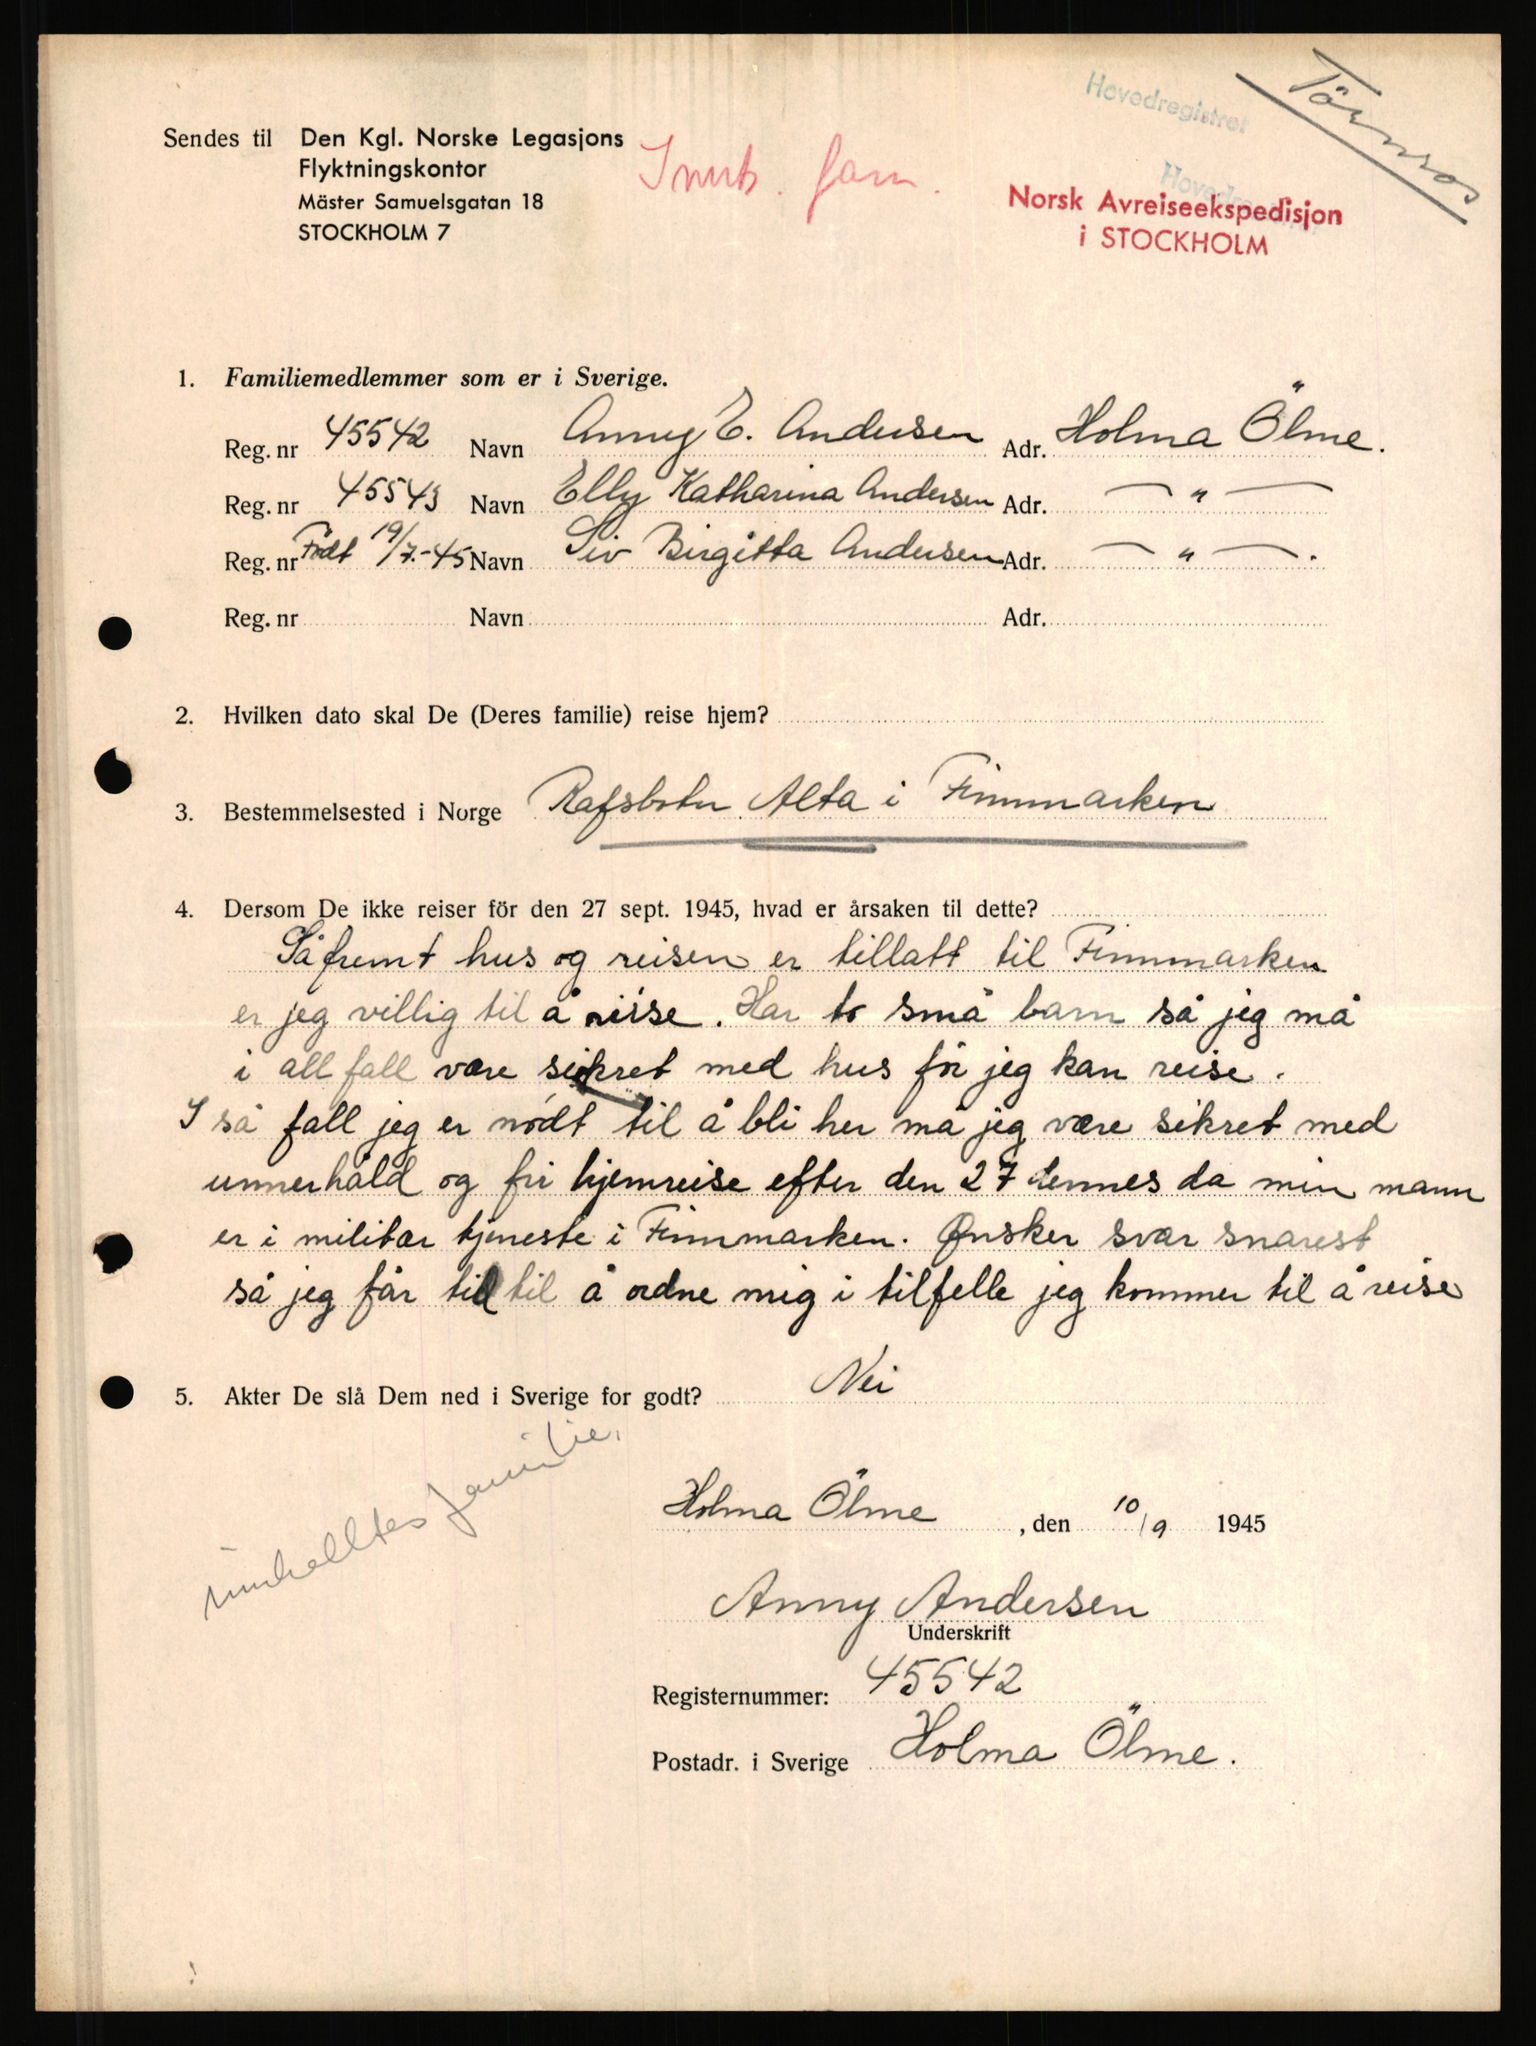 Hovedregistret
Törnros
Sendes til Den Kgl. Norske Legasjons
Flyktningskontor
Mäster Samuelsgatan 18
STOCKHOLM 7
fam.
Norsk Avreiseekspedisjon
i STOCKHOLM
1. Familiemedlemmer som er i Sverige.
Reg. nr 45542 Navn Anny E. Andersen Adr. Holma Ölme.
Reg. nr 45543 Navn Elly Katharina Andersen Adr. — " —
Reg. nr Født 19/7.-45 Navn Siv Birgitta Andersen Adr. — " — .
Reg. nr Navn Adr.
2. Hvilken dato skal De (Deres familie) reise hjem?
3. Bestemmelsested i Norge Rafsbotn Alta i Finnmarken
4. Dersom De ikke reiser för den 27 sept. 1945, hvad er årsaken til dette?
Såfremt hus og reisen er tillatt til Finnmarken
er jeg villig til å reise. Har to små barn så jeg må
i all fall være sikret med hus før jeg kan reise.
I så fall jeg er nödt til å bli her må jeg være sikret med
unnerhåld og fri hjemreise efter den 27 dennes da min mann
er i militær tjeneste i Finnmarken. Ønsker svar snarest
så jeg får tid til å ordne mig i tilfelle jeg kommer til å reise
5. Akter De slå Dem ned i Sverige for godt? Nei
familie.
Holma Ölme , den 10/9 1945
Anny Andersen
Underskrift
Registernummer: 45542
Postadr. i Sverige Holma Ölme.